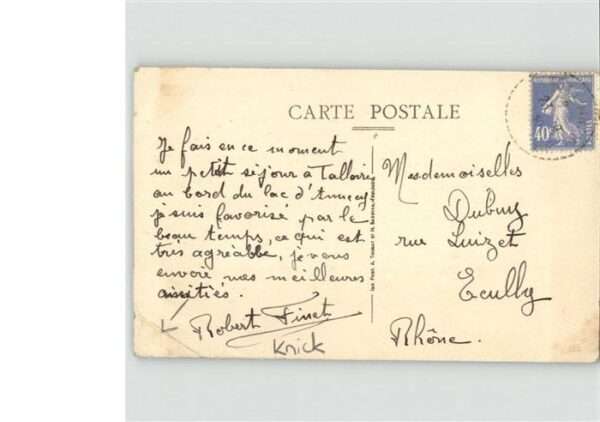 CARTE POSTALE
40c
Je fais en ce moment
un petit séjour à Talloires
au bord du lac d'Annecy
je suis favorisé par le
beau temps, ce qui est
très agréable, je vous
envoie mes meilleures
amitiés.
Robert Finet
Knick
Mesdemoiselles
Dubuy
rue Luizet
Ecully
Rhône.